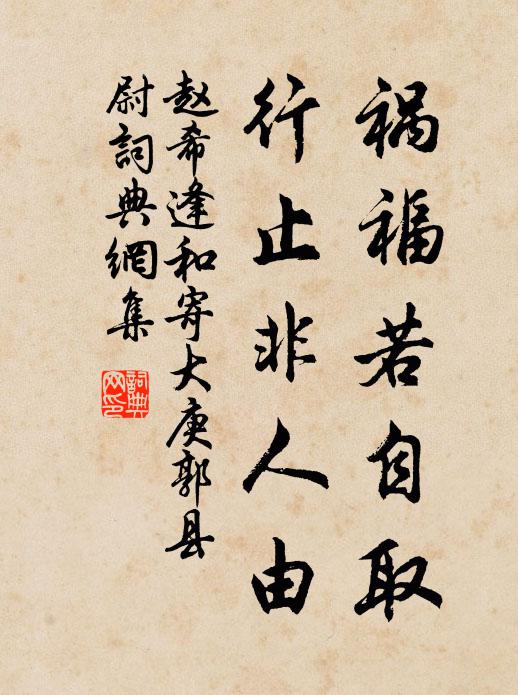 祸福若自取
行止非人由
赵希逢和寄大庾郭县
尉詞典網集
詞典
网印